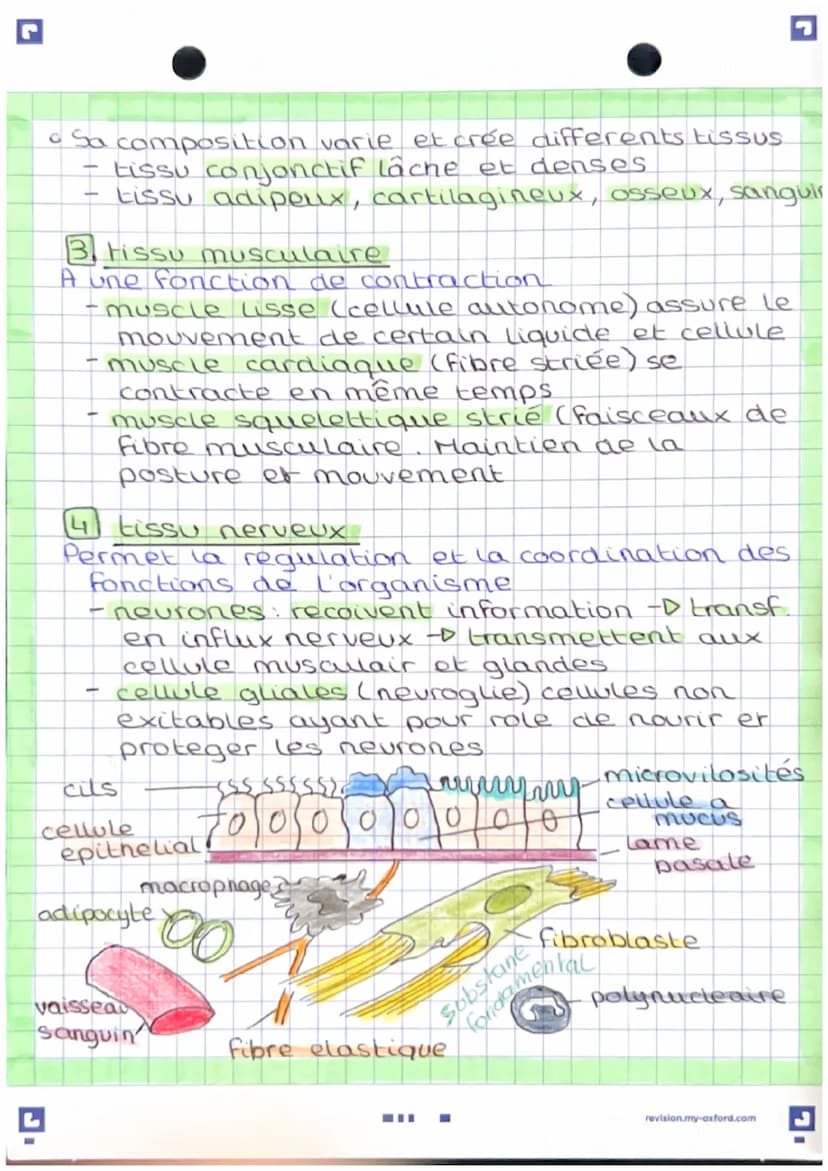 Sa composition varie et crée differents tissus
- tissu conjonctif lâche et denses
- tissu adipeux, cartilagineux, osseux, sanguin
3 tissu musculaire
A une fonction de contraction
- muscle lisse (cellule autonome) assure le
mouvement de certain liquide et cellule
- muscle cardiaque (fibre striée) se
contracte en même temps
- muscle squelettique strié (faisceaux de
fibre musculaire. Maintien de la
posture et mouvement
4 tissu nerveux
Permet la regulation et la coordination des
fonctions de l'organisme
- neurones : recoivent information → transf.
en influx nerveux → transmettent aux
cellule musculair et glandes
- cellule gliales (neuroglie) cellules non
exitables ayant pour role de nourir et
proteger les neurones
cils
microvilosités
cellule a
mucus
cellule
epithelial
lame
basale
macrophage
adipocyte
fibroblaste
substane
fondamental
polynucleaire
vaisseau
sanguin
fibre elastique
revision.my-oxford.com